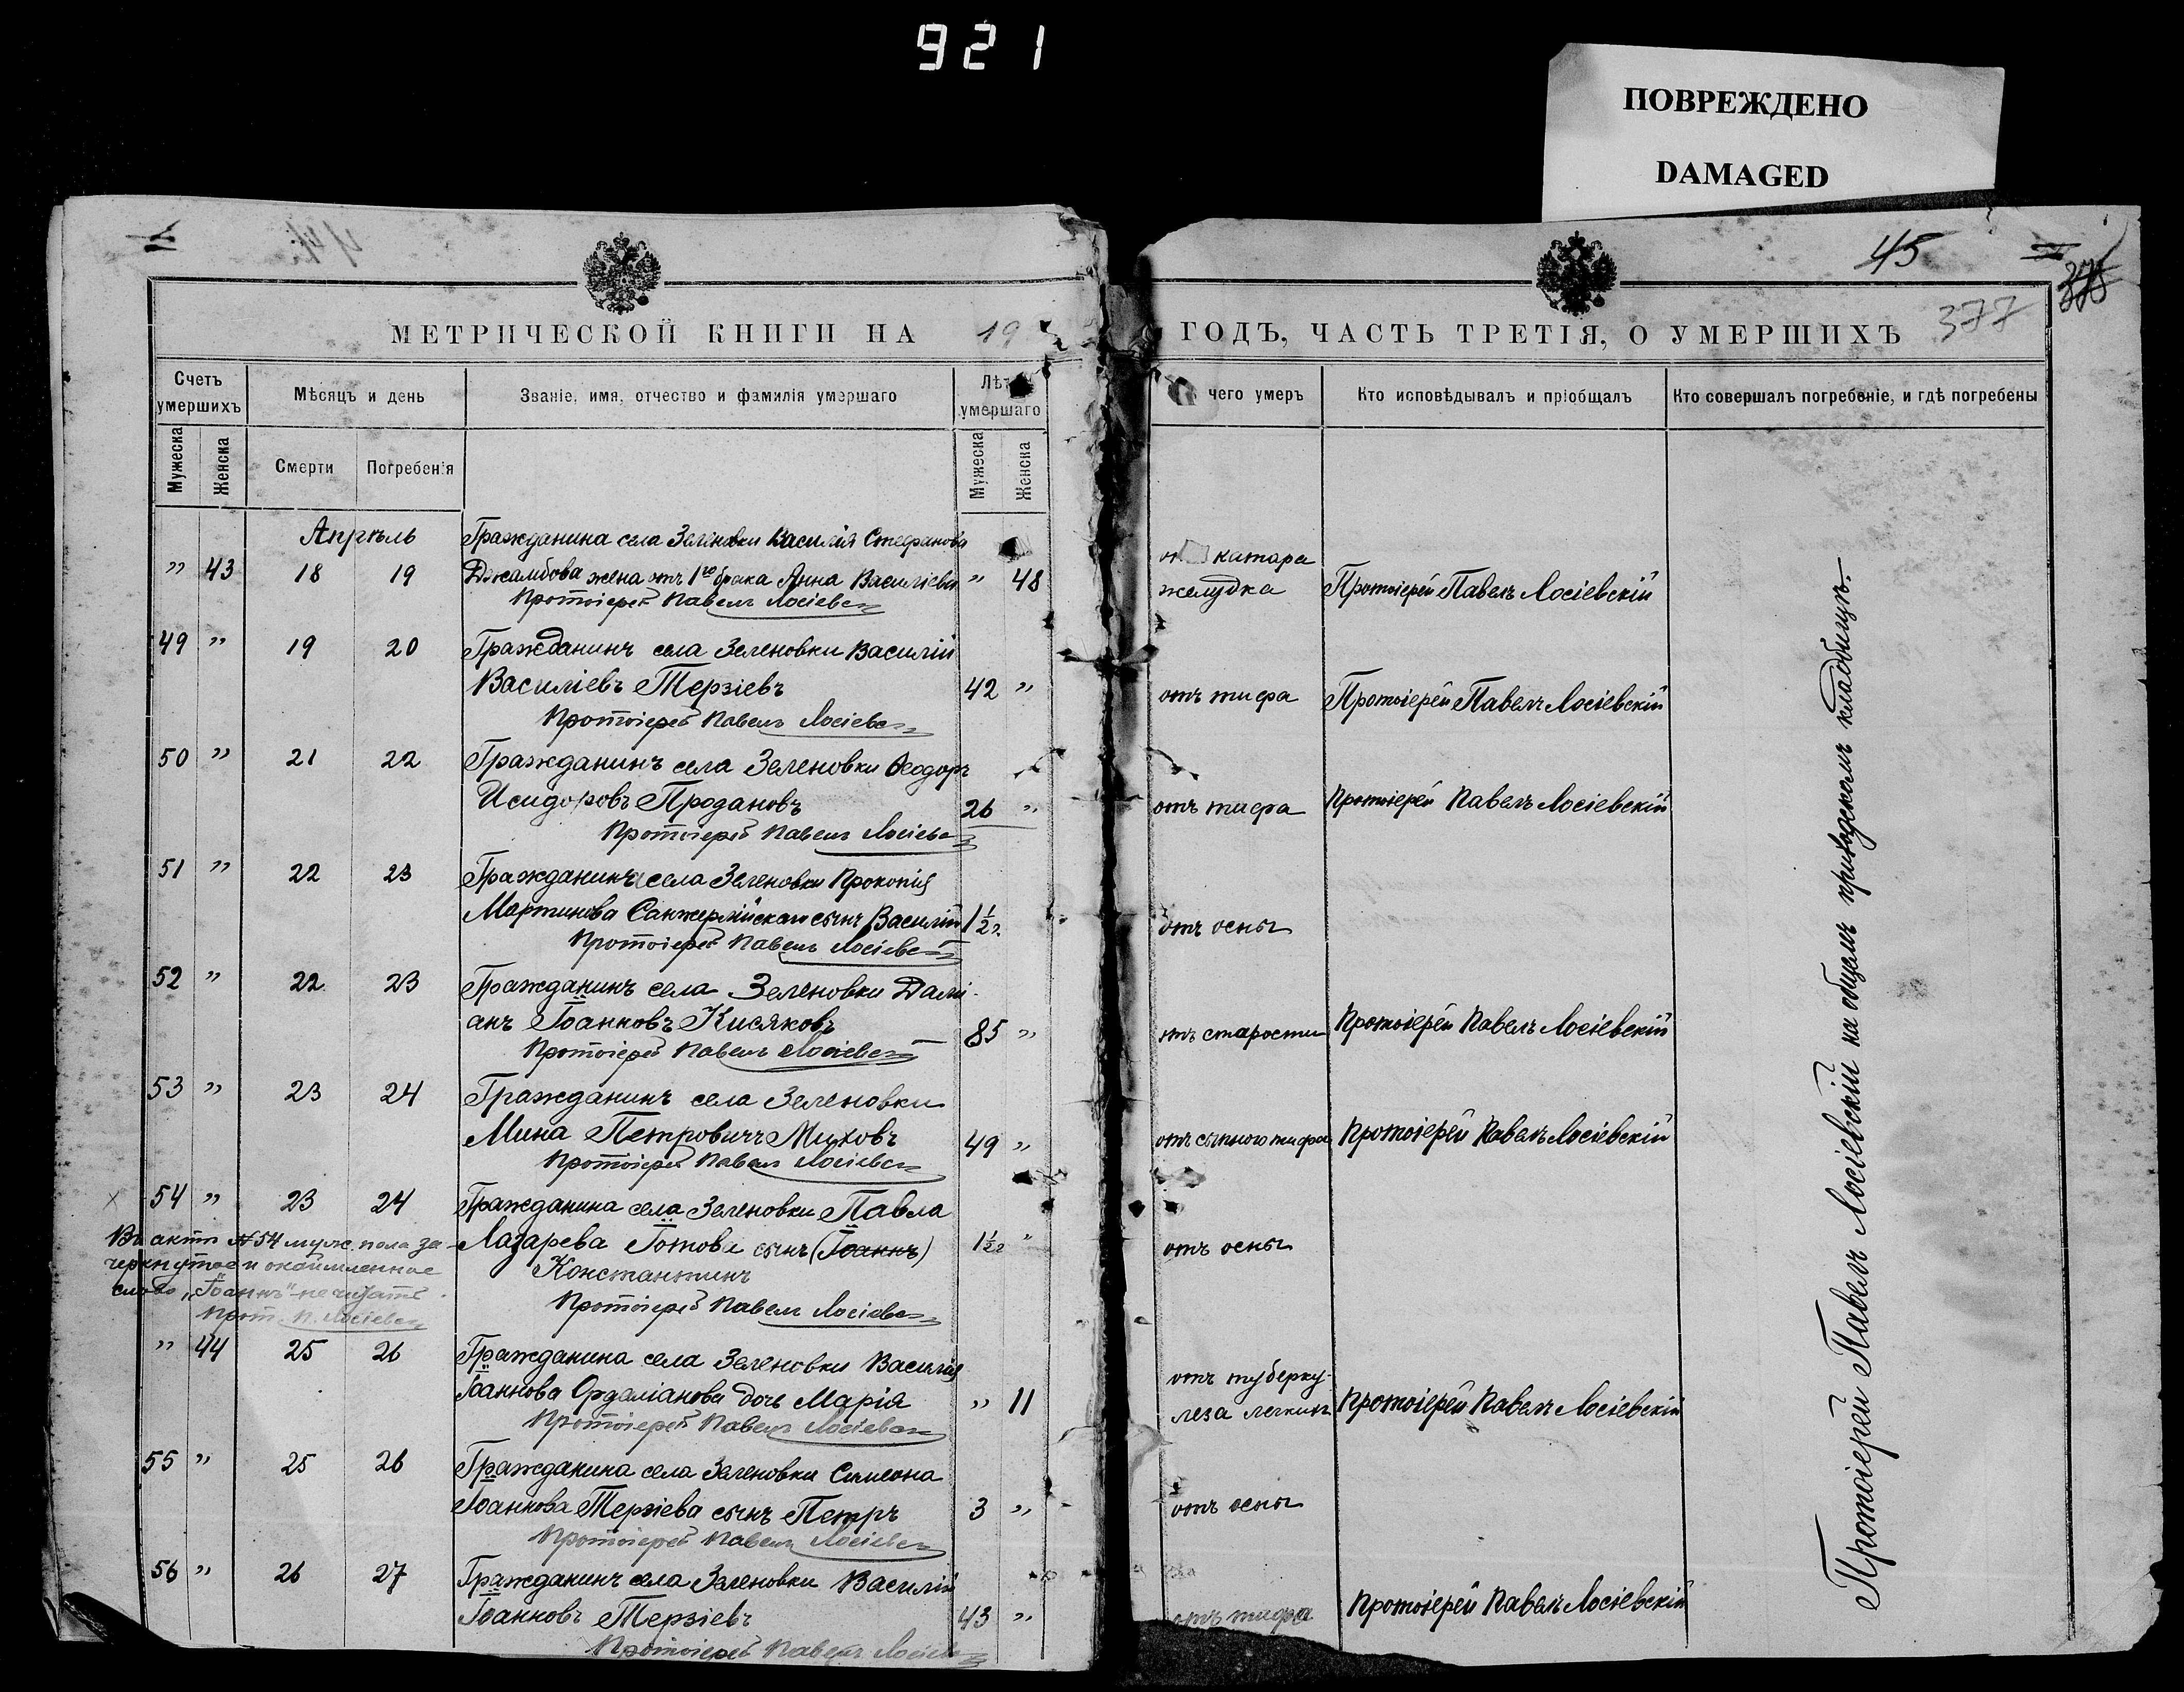 921
ПОВРЕЖДЕНО
DAMAGED
45
377
МЕТРИЧЕСКОЙ КНИГИ НА 19
ГОДЪ, ЧАСТЬ ТРЕТІЯ, О УМЕРШИХЪ
Счетъ умершихъ
Мѣсяцъ и день
Званіе, имя, отчество и фамилія умершаго
Лѣт умершаго
чего умеръ
Кто исповѣдывалъ и пріобщалъ
Кто совершалъ погребеніе, и гдѣ погребены
Мужеска Женска Смерти Погребенія Мужеска Женска
Апрѣль Гражданина села Зеленовки Василія Стефанова
" 43 18 19 Джамбова жена отъ 1го брака Анна Василіева " 48 катара
желудка Протоіерей Павелъ Лосіевскій
Протоіерей Павелъ Лосіевск
49 " 19 20 Гражданинъ села Зеленовки Василій
Василіевъ Терзіевъ 42 " отъ тифа Протоіерей Павелъ Лосіевскій
Протоіерей Павелъ Лосіевск
50 " 21 22 Гражданинъ села Зеленовки Ѳеодоръ
Исидоровъ Продановъ 26 " отъ тифа Протоіерей Павелъ Лосіевскій
Протоіерей Павелъ Лосіевск
51 " 22 23 Гражданина села Зеленовки Прокопія
Мартинова сынъ Василій 1½ г. отъ оспы
Протоіерей Павелъ Лосіевск
52 " 22 23 Гражданинъ села Зеленовки Дамі-
анъ Іоанновъ Кисяковъ 85 " отъ старости Протоіерей Павелъ Лосіевскій
Протоіерей Павелъ Лосіевск
53 " 23 24 Гражданинъ села Зеленовки
Мина Петровичъ 49 " отъ сыпного тифа Протоіерей Павелъ Лосіевскій
Протоіерей Павелъ Лосіевск
54 " 23 24 Гражданина села Зеленовки Павла
Лазарева сынъ (Іоаннъ) 1½ г " отъ оспы
Константинъ
Протоіерей Павелъ Лосіевск
Въ актѣ № 54 муж. пола за-
черкнутое и окаймленное
слово "Іоаннъ" не читать.
Прот. П. Лосіевск
" 44 25 26 Гражданина села Зеленовки Василія
Іоаннова Ордаліанова дочь Марія " 11 отъ туберку-
леза легкихъ Протоіерей Павелъ Лосіевскій
Протоіерей Павелъ Лосіевск
55 " 25 26 Гражданина села Зеленовки Симеона
Іоаннова Терзіева сынъ Петръ 3 " отъ оспы
Протоіерей Павелъ Лосіевск
56 " 26 27 Гражданинъ села Зеленовки Василій
Іоанновъ Терзіевъ 43 " отъ тифа Протоіерей Павелъ Лосіевскій
Протоіерей Павелъ Лосіевск
Протоіерей Павелъ Лосіевскій на общемъ приходскомъ кладбищѣ.